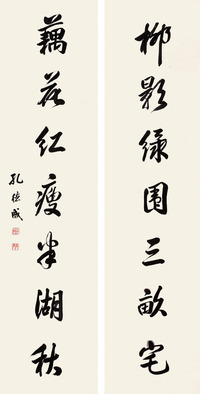 柳影绿围三畝宅
藕花红瘦半湖秋
孔德成